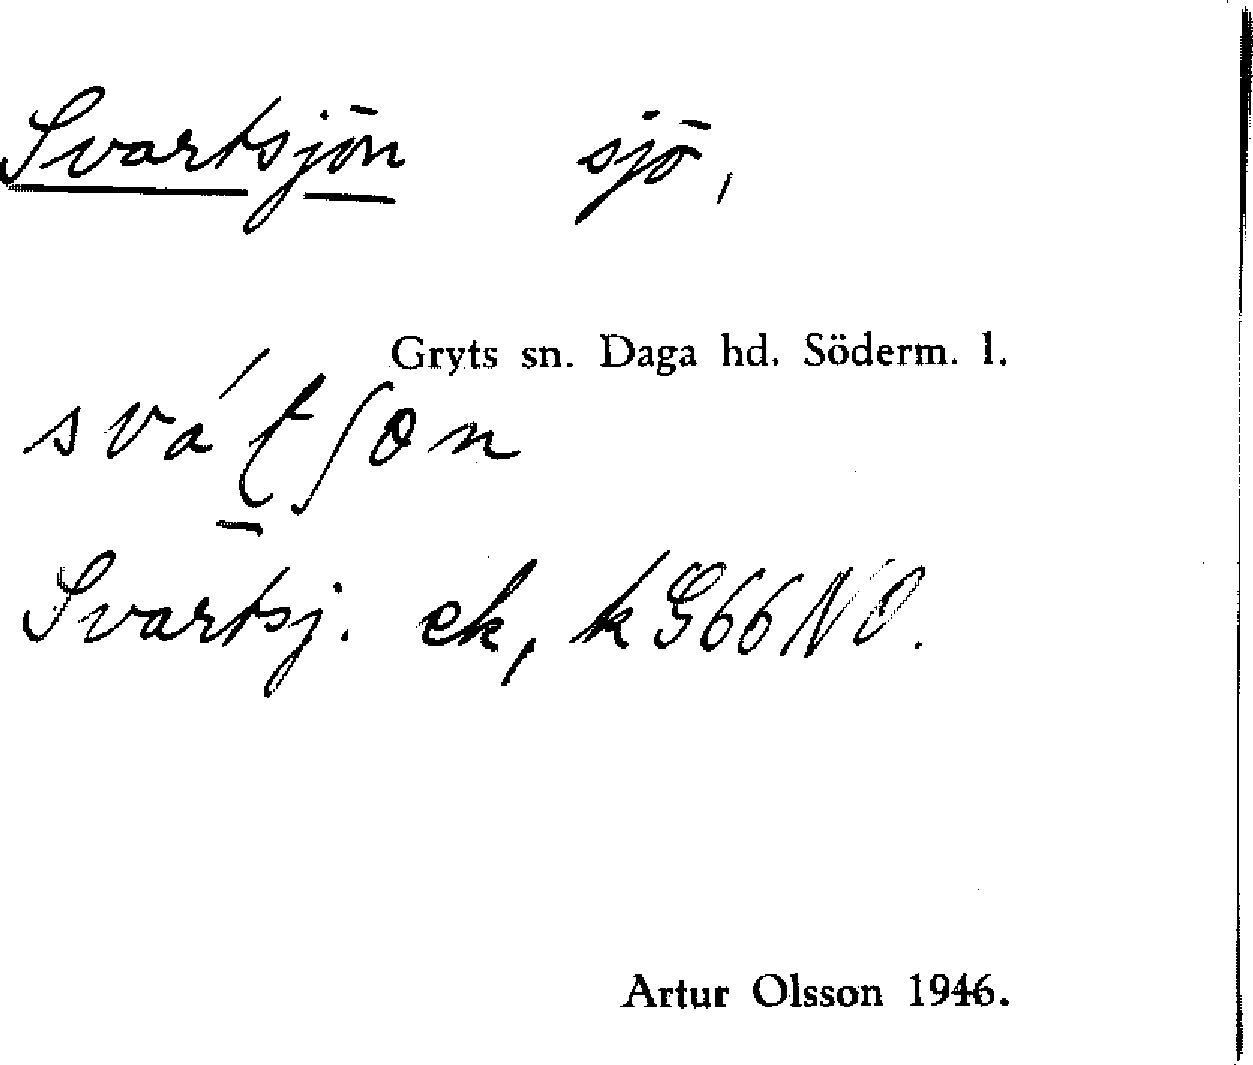 Svartsjön sjö,
Gryts sn. Daga hd. Söderm. l.
svát̠ʃøn
Svartsj. ek, k G66NO.
Artur Olsson 1946.